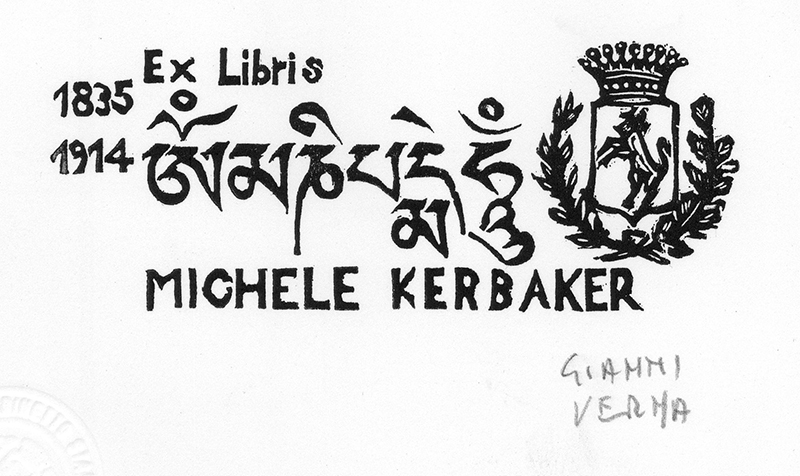 Ex Libris
1835
1914 ཨོཾམཎིཔདྨེཧཱུྃ
MICHELE KERBAKER
GIANNI
VERNA